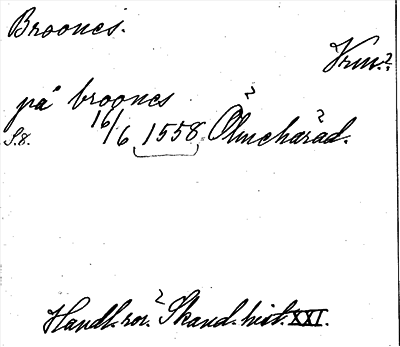 Broones.
Vrm.?
på broones
16/6 1558 Ölmehärad.
S. 8.
Handl. rör. Skand. hist. XXI.